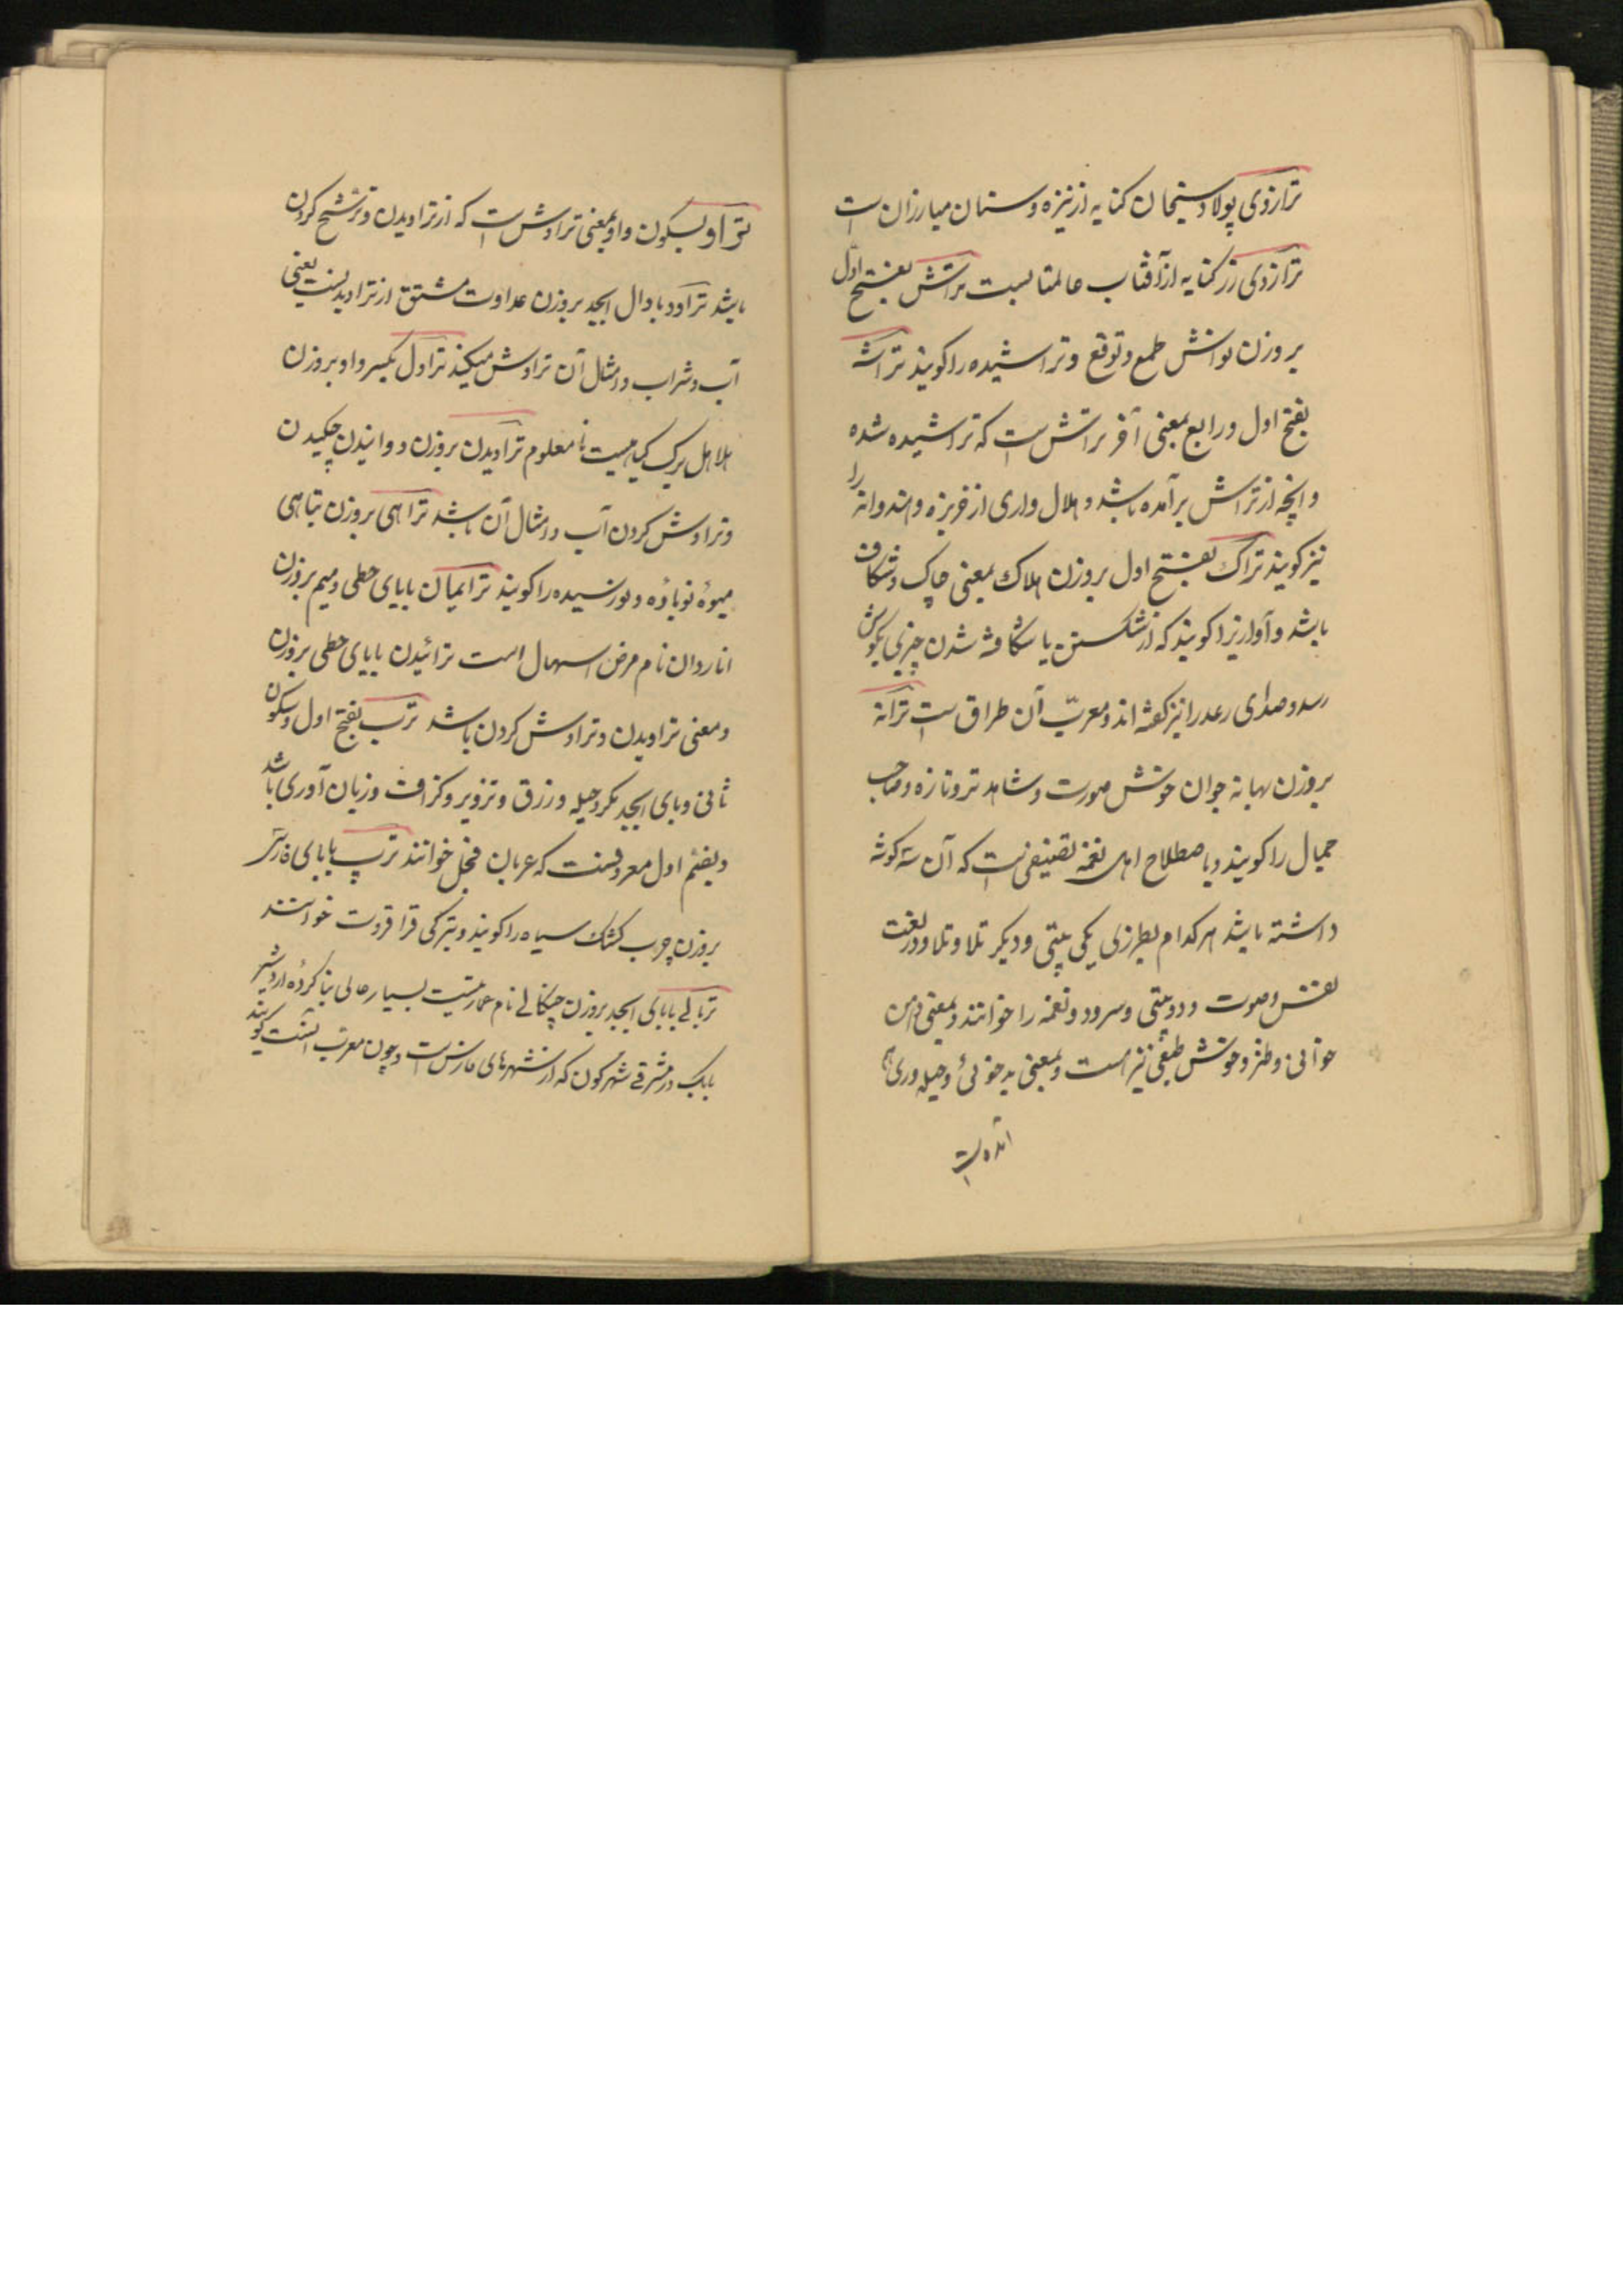 ترازوی پولاد سنجان کنایه از نیزه و سنان مبارزان است
ترازوی زر کنایه از آفتاب عالمتابست تراش بفتح اول
بر وزن نوانش طمع و توقع و تراشیده را کویند تراشه
بفتح اول و رابع بمعنی آخر تراش است که تراشیده شده
و آنچه از تراش برآمده باشد و هلال واری از خربزه و هندوانه را
نیز کویند تراک بفتح اول بر وزن هلاک بمعنی چاک و شکاف
باشد و آوازیرا کویند که از شکستن یا شکافته شدن چیزی بکوش
رسد و صدای رعد را نیز کفته اند و معرب آن طراق است ترانه
بر وزن بهانه جوان خوش صورت و شاهد تر و تازه و صاحب
جمال را کویند و باصطلاح اهل نغمه تصنیفی است که آن سه کوشه
داشته باشد هر کدام بطرزی یکی بیتی و دیکر تلا و تلا و در لغت
نقش و صوت و دو بیتی و سرود و نغمه را خوانند و بمعنی دهن
خوانی و طنز و خوش طبعی نیز هست و بمعنی بدخوئی و حیله وری هم
آمده است
تراو بسکون واو بمعنی تراوش است که از تراویدن و ترشح کردن
باشد تراود با دال ابجد بر وزن عداوت مشتق از تراویدنست یعنی
آب و شراب و امثال آن تراوش میکند تراول بکسر واو بر وزن
هلاهل برک کیاهیست نامعلوم تراویدن بر وزن دوانیدن چکیدن
و تراوش کردن آب و امثال آن باشد تراهی بر وزن تباهی
میوهٔ نوباوه و نورسیده را کویند ترایمان بایای حطی و میم بر وزن
اناردان نام مرض اسهال است ترائیدن بایای حطی بر وزن
و معنی تراویدن و تراوش کردن باشد ترب بفتح اول و سکون
ثانی و بای ابجد مکر و حیله و زرق و تزویر و کزاف و زبان آوری باشد
و بضم اول معروفست که عربان فجل خوانند ترپ بابای فارسی
بر وزن چرب کشک سیاه را کویند و بترکی قراقروت خوانند
تربالی بابای ابجد بر وزن چنکالی نام عمارتیست بسیار عالی بنا کرده اردشیر
بابک در مشرقی شهر کون که از شهرهای فارس است و چون معرب آنست کویند